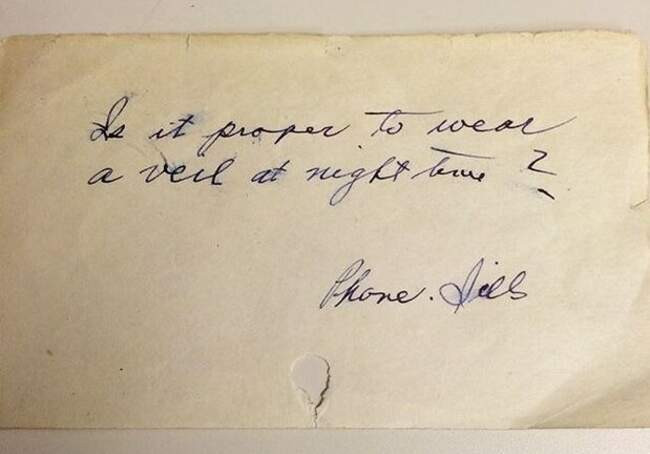 Is it proper to wear
a veil at night time ?
Phone.